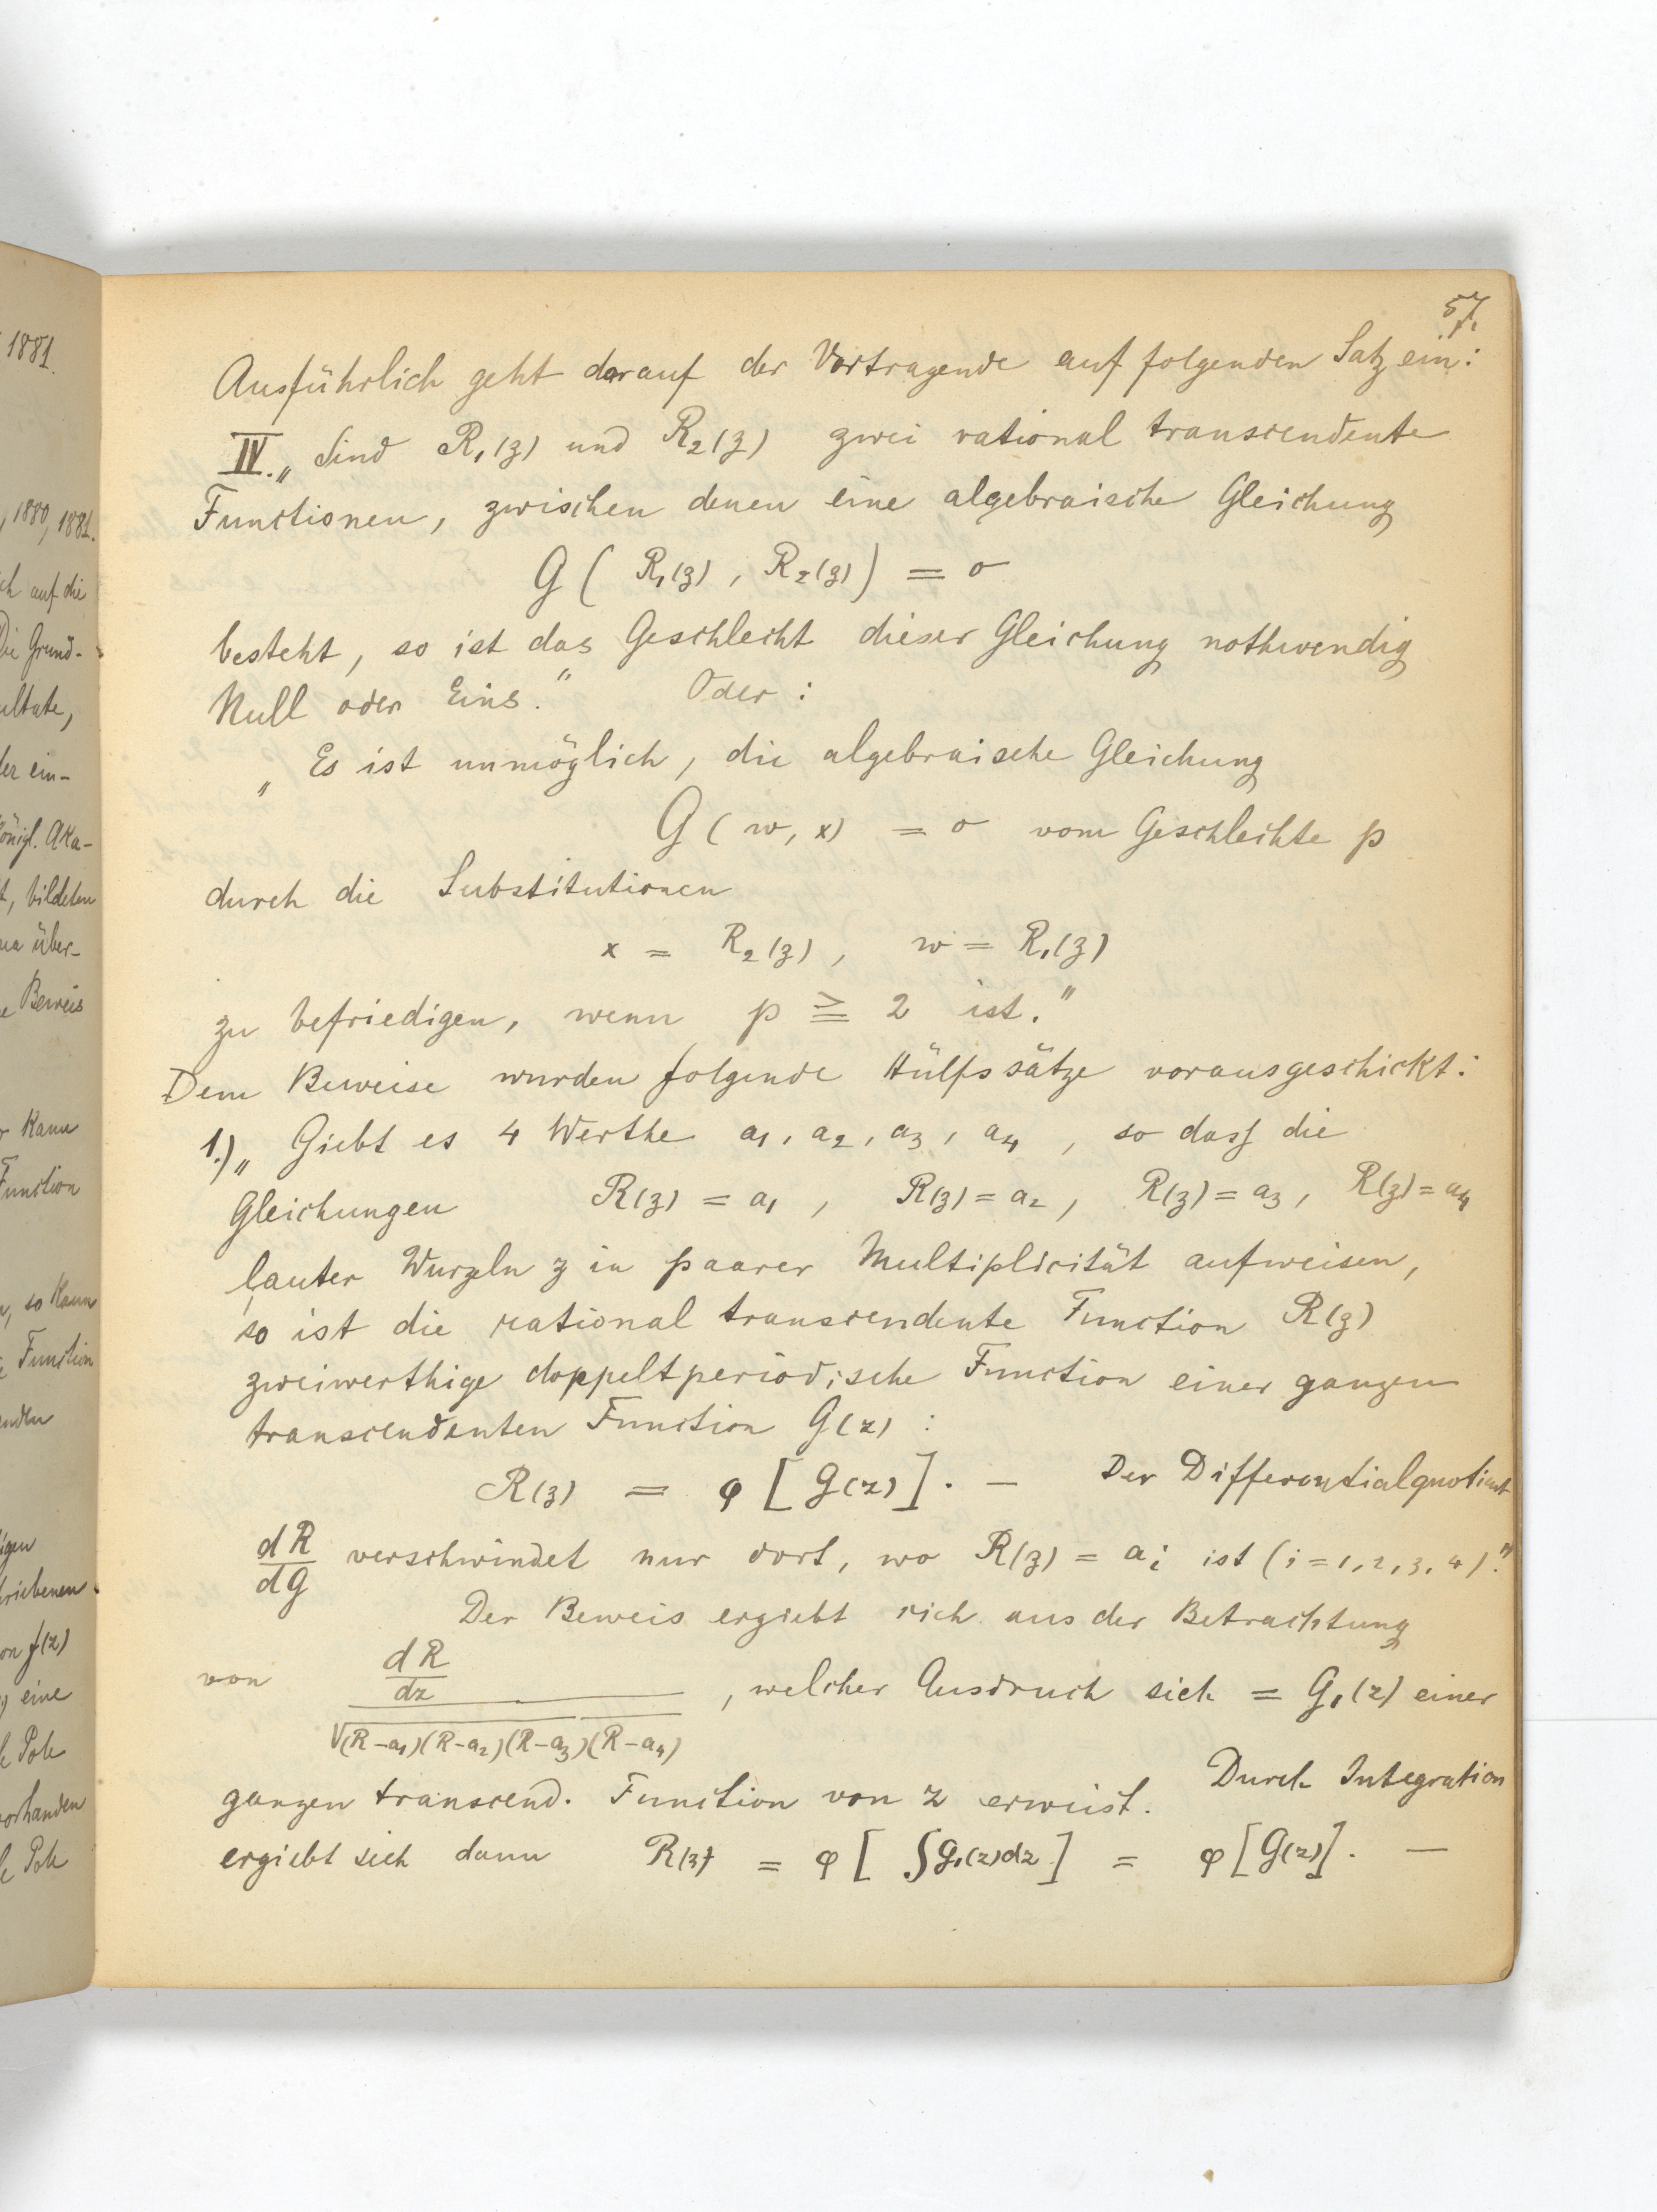 1881.
, 1880, 1881.
ch auf die
Die Grund-
ultate,
der ein-
König. Aka-
t, bildeten
na über-
e Beweis
r kann
Function
n, so kann
e Function
enden
igen
riebenen
on f(z)
eine
le Pole
vorhanden
le Pole
57.
Ausführlich geht darauf der Vortragende auf folgenden Satz ein:
IV. „ Sind R₁(z) und R₂(z) zwei rational transcendente
Functionen, zwischen denen eine algebraische Gleichung
G ( R₁(z), R₂(z) ) = 0
besteht, so ist das Geschlecht dieser Gleichung nothwendig
Null oder Eins." Oder:
„ Es ist unmöglich, die algebraische Gleichung
G (w, x) = 0 vom Geschlechte p
durch die Substitutionen
x = R₂(z), w = R₁(z)
zu befriedigen, wenn p ≧ 2 ist."
Dem Beweise wurden folgende Hülfssätze vorausgeschickt:
1.) „ Giebt es 4 Werthe a₁, a₂, a₃, a₄, so dass die
Gleichungen R(z) = a₁, R(z) = a₂, R(z) = a₃, R(z) = a₄
lauter Wurzeln z in paarer Multiplicität aufweisen,
so ist die rational transcendente Function R(z)
zweiwerthige doppeltperiodische Function einer ganzen
transcendenten Function G(z):
R(z) = φ [G(z)]. — Der Differentialquotient
dR/dG verschwindet nur dort, wo R(z) = aᵢ ist (i = 1, 2, 3, 4)."
Der Beweis ergiebt sich aus der Betrachtung
von dR/dz / √(R-a₁)(R-a₂)(R-a₃)(R-a₄), welcher Ausdruck sich = G₁(z) einer
ganzen transcend. Function von z erweist. Durch Integration
ergiebt sich dann R(z) = φ [∫G₁(z)dz] = φ [G(z)]. —